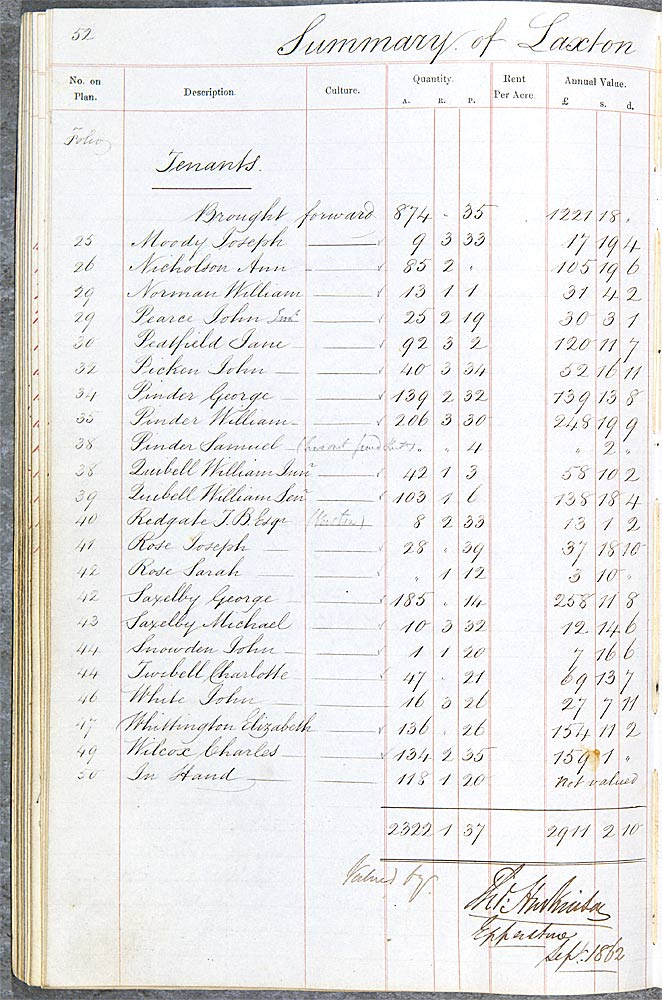 52 Summary of Laxton
No. on Plan. Description. Culture. Quantity. Rent Per Acre. Annual Value.
A. R. P. £ s. d.
Folio
Tenants.
Brought forward 874 . 35 1221 18 "
25 Moody Joseph 9 3 33 17 19 4
26 Nicholson Ann 85 2 " 105 19 6
29 Norman William 13 1 1 31 4 2
29 Pearce John Junr 25 2 19 30 3 1
30 Peatfield Jane 92 3 2 120 11 7
32 Picken John 40 3 34 52 16 11
34 Pinder George 139 2 32 139 13 8
35 Pinder William 206 3 30 248 19 9
38 Pinder Samuel " " 4 " 2 "
38 Quibell William Junr 42 1 3 58 10 2
39 Quibell William Senr 103 1 6 138 18 4
40 Redgate T. B. Esqr 8 2 33 13 1 2
41 Rose Joseph 28 " 39 37 18 10
42 Rose Sarah " 1 12 3 10 "
42 Saxelby George 185 " 14 258 11 8
43 Saxelby Michael 10 3 32 12 14 6
44 Snowden John 1 1 20 7 16 6
44 Twibell Charlotte 47 . 21 69 13 7
46 White John 16 3 26 27 7 11
47 Whittington Elizabeth 136 . 26 154 11 2
49 Wilcox Charles 134 2 35 159 1 "
50 In Hand 118 1 20 Not valued
2322 1 37 2911 2 10
Valued by
Thos.
Epperstone
Sept. 1862